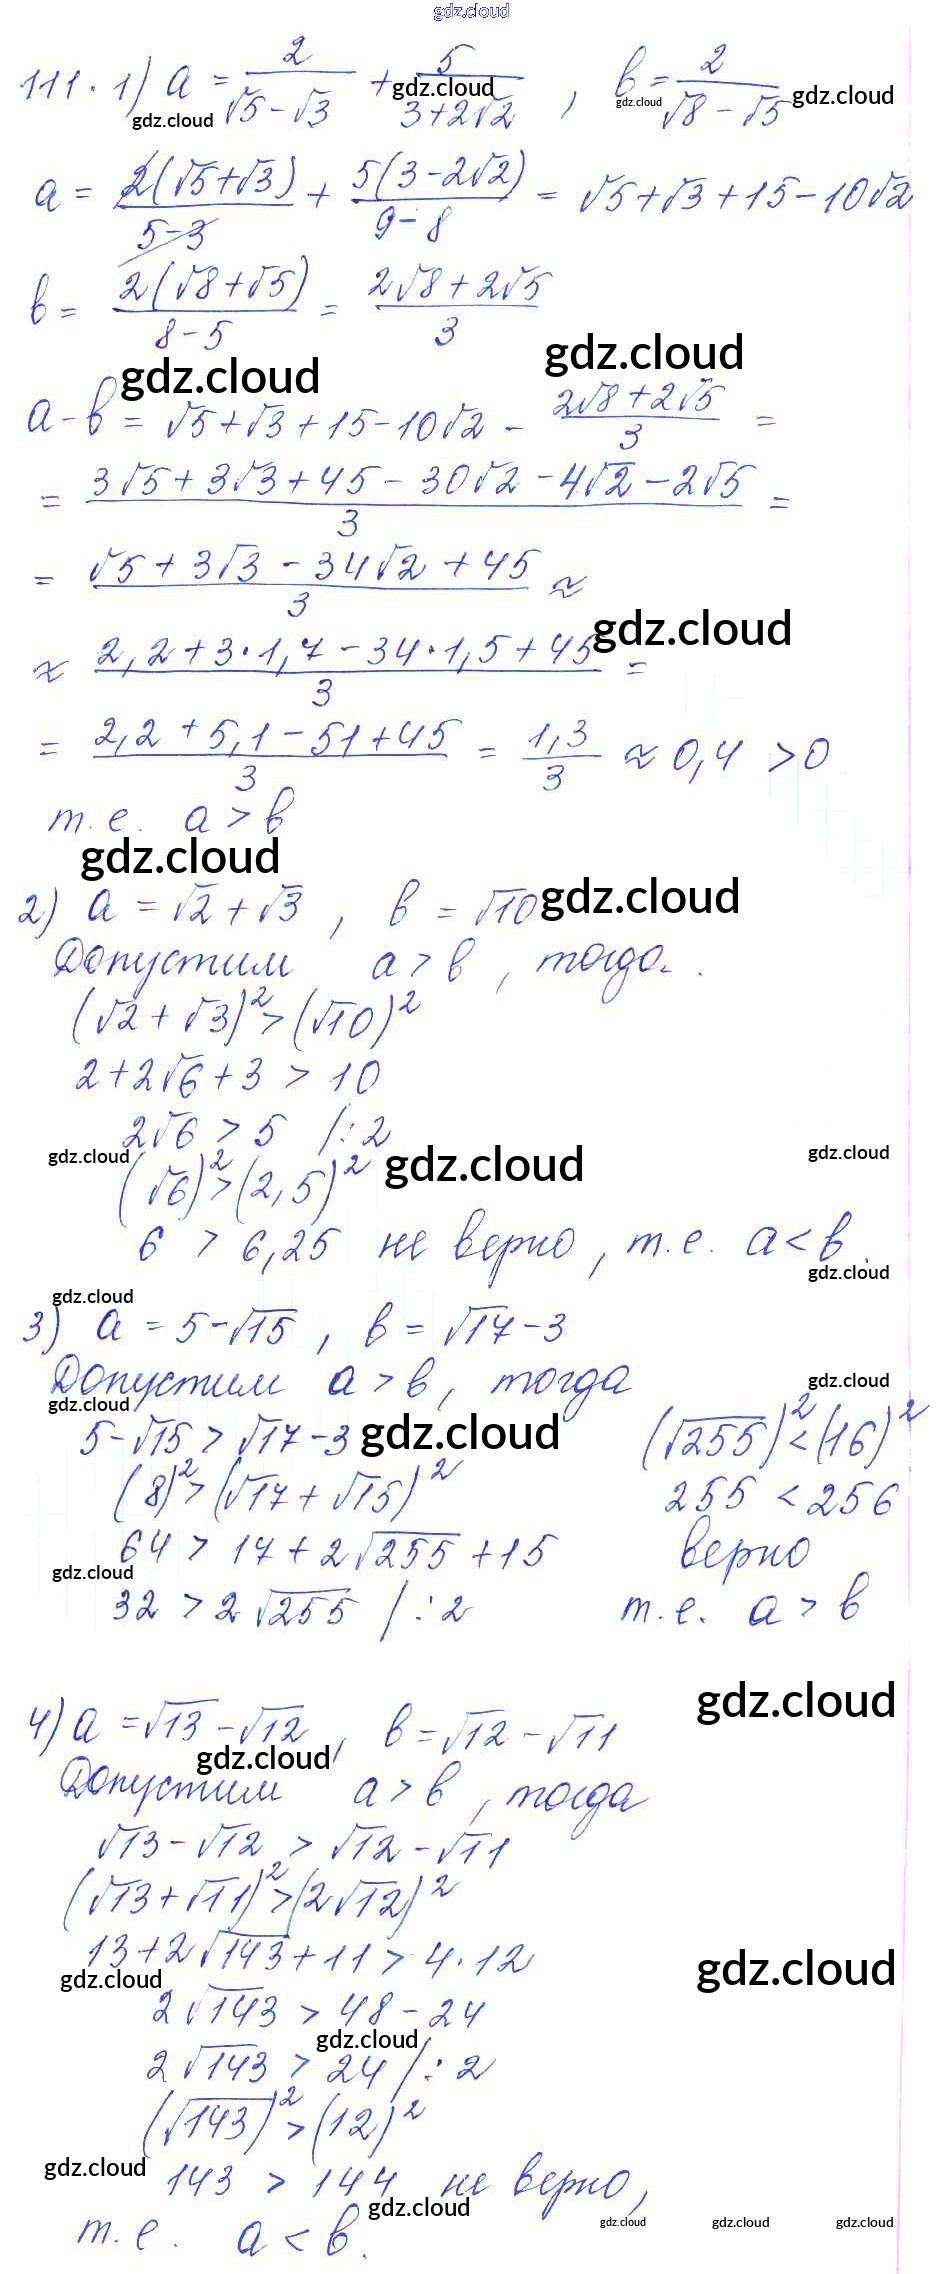 gdz.cloud
111. 1) a = 2/(√5 − √3) + 5/(3+2√2) , b = 2/(√8 − √5)
gdz.cloud gdz.cloud gdz.cloud gdz.cloud
a = 2(√5+√3)/(5−3) + 5(3−2√2)/(9−8) = √5+√3+15−10√2
b = 2(√8+√5)/(8−5) = (2√8+2√5)/3
gdz.cloud gdz.cloud
a−b = √5+√3+15−10√2 − (2√8+2√5)/3 =
= (3√5+3√3+45−30√2−4√2−2√5)/3 =
= (√5+3√3−34√2+45)/3 ≈
gdz.cloud
≈ (2,2+3·1,7−34·1,5+45)/3 =
= (2,2+5,1−51+45)/3 = 1,3/3 ≈ 0,4 > 0
т.е. a > b
gdz.cloud
2) a = √2+√3 , b = √10
gdz.cloud
Допустим a > b , тогда
(√2+√3)² > (√10)²
2+2√6+3 > 10
2√6 > 5 /:2
gdz.cloud gdz.cloud gdz.cloud
(√6)² > (2,5)²
6 > 6,25 не верно, т.е. a < b.
gdz.cloud
gdz.cloud
3) a = 5−√15 , b = √17−3
Допустим a > b, тогда
gdz.cloud gdz.cloud
5−√15 > √17−3
gdz.cloud
(8)² > (√17+√15)²
64 > 17+2√255+15
gdz.cloud
32 > 2√255 /:2
(√255)² < (16)²
255 < 256
верно
т.е. a > b
gdz.cloud
4) a = √13−√12 , b = √12−√11
gdz.cloud
Допустим a > b , тогда
√13−√12 > √12−√11
(√13+√11)² > (2√12)²
13+2√143+11 > 4·12
gdz.cloud gdz.cloud
2√143 > 48−24
gdz.cloud
2√143 > 24 /:2
(√143)² > (12)²
gdz.cloud
143 > 144 не верно,
gdz.cloud
т.е. a < b.
gdz.cloud gdz.cloud gdz.cloud